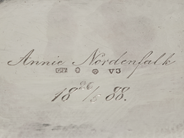 Annie Nordenfalk
18 26/5 88.